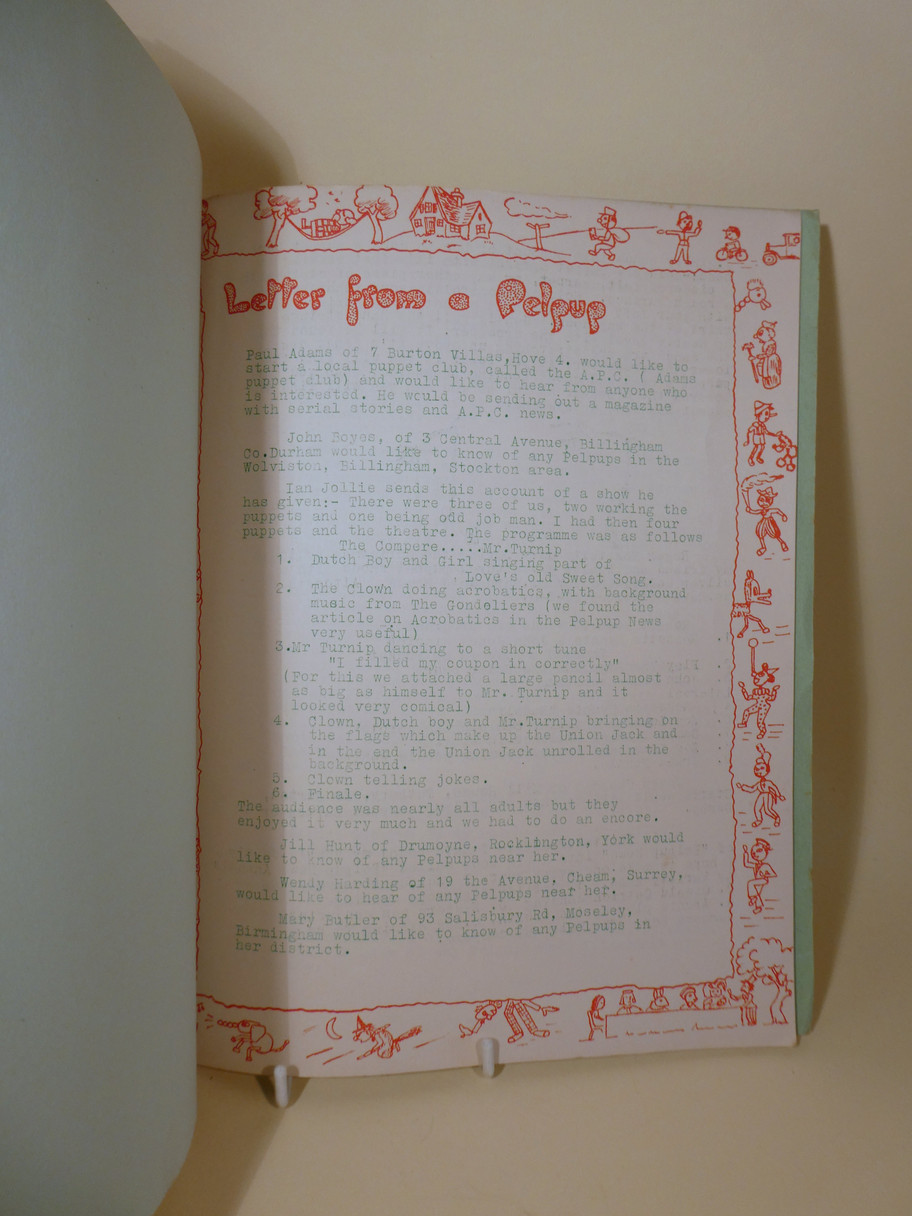 Letter from a Pelpup
Paul Adams of 7 Burton Villas,Hove 4. would like to
start a local puppet club, called the A.P.C. ( Adams
puppet club) and would like to hear from anyone who
is interested. He would be sending out a magazine
with serial stories and A.P.C. news.
John Boyes, of 3 Central Avenue, Billingham
Co.Durham would like to know of any Pelpups in the
Wolviston, Billingham, Stockton area.
Ian Jollie sends this account of a show he
has given:- There were three of us, two working the
puppets and one being odd job man. I had then four
puppets and the theatre. The programme was as follows
The Compere.....Mr.Turnip
1. Dutch Boy and Girl singing part of
Love's old Sweet Song.
2. The Clown doing acrobatics, with background
music from The Gondoliers (we found the
article on Acrobatics in the Pelpup News
very useful)
3.Mr Turnip dancing to a short tune
"I filled my coupon in correctly"
(For this we attached a large pencil almost
as big as himself to Mr. Turnip and it
looked very comical)
4. Clown, Dutch boy and Mr.Turnip bringing on
the flags which make up the Union Jack and
in the end the Union Jack unrolled in the
background.
5. Clown telling jokes.
6. Finale.
The audience was nearly all adults but they
enjoyed it very much and we had to do an encore.
Jill Hunt of Drumoyne, Rocklington, York would
like to know of any Pelpups near her.
Wendy Harding of 19 the Avenue, Cheam, Surrey,
would like to hear of any Pelpups near her.
Mary Butler of 93 Salisbury Rd, Moseley,
Birmingham would like to know of any Pelpups in
her district.